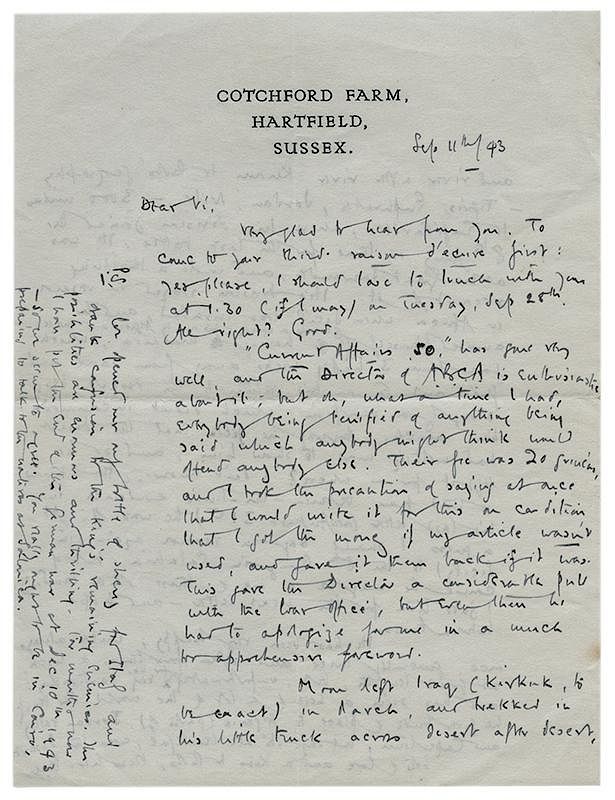 COTCHFORD FARM,
HARTFIELD,
SUSSEX.
Sep 11th/43
Dear Vi,
Very glad to hear from you. To
come to your third raison d'ecrire first:
yes please, I should love to lunch with you
at 1.30 (if I may) on Tuesday, Sep 28th.
All right? Good.
"Current Affairs 50," has gone very
well, and the Director of ABCA is enthusiastic
about it; but oh, what a time I had,
everybody being terrified of anything being
said which anybody might think would
offend anybody else. Their fee was 20 guineas,
and I took the precaution of saying at once
that I would write it for this on condition
that I got the money if my article wasn't
used, and gave it them back if it was.
This gave the Director a considerable pull
with the War Office, but even then he
had to apologize for me in a much
too apprehensive foreword.
Moon left Iraq (Kirkuk, to
be exact) in March, and trekked in
his little truck across desert after desert,
P.S. I've opened my bottle of sherry for Italy and
drank confusion to the King's remaining enemies. The
possibilities are enormous and thrilling. For months now
I have put the end of the German war at Dec 10th 1943
— so we seem to agree. You really ought to be in Cairo,
preparing to talk to the natives at Salonica.